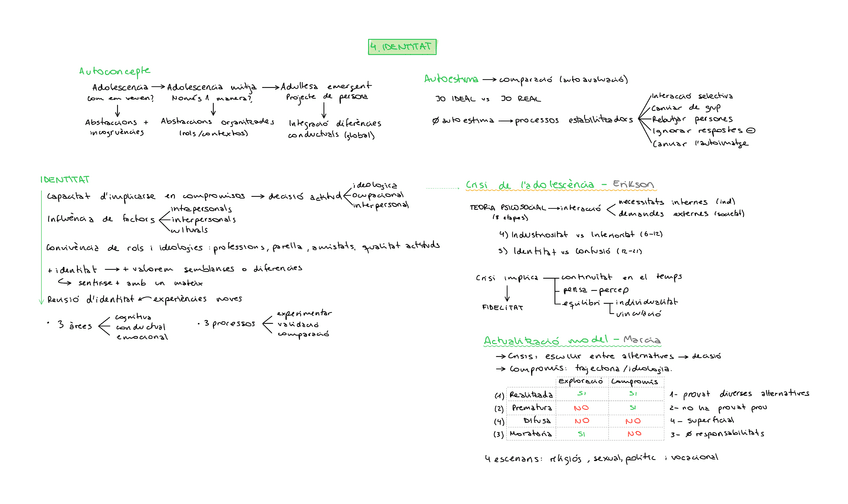 4. IDENTITAT
Autoconcepte
Adolescencia → Adolescencia mitja → Adultesa emergent
com em veuen? Només 1 manera? Projecte de persona
Abstraccions + Abstraccions organitzades Integració diferències
incogruències (rols/contextos) conductuals (global)
Autoestima → comparació (autoavaluació)
JO IDEAL vs JO REAL
Ø autoestima → processos estabilitzadors
Interacció selectiva
Canviar de grup
Rebutjar persones
Ignorar respostes ⊖
Canviar l'autoimatge
IDENTITAT
Capacitat d'implicarse en compromisos → decisió actitud
ideologica
ocupacional
interpersonal
Influència de factors
intrapersonals
interpersonals
culturals
Convivència de rols i ideologies: professions, parella, amistats, qualitat actituds
+ identitat → + valorem semblances o diferencies
↳ sentirse + amb un mateix
Revisió d'identitat ← experiències noves
· 3 àrees
cognitiva
conductual
emocional
· 3 processos
experimentar
validació
comparació
Crisi de l'adolescència - Erikson
TEORIA PSICOSOCIAL → interacció
(8 etapes)
necessitats internes (ind)
demandes externes (societat)
4) Industriositat vs Inferioritat (6-12)
5) Identitat vs Confusió (12-21)
Crisi implica
continuïtat en el temps
pensa - percep
equilibri
individualitat
vinculació
FIDELITAT
Actualització model - Marcia
→ Crisi: escullir entre alternatives → decisió
→ Compromís: trajectoria/ideologia.
Exploració Compromís
(1) Realitzada SI SI 1- provat diverses alternatives
(2) Prematura NO SI 2- no ha provat prou
(4) Difusa NO NO 4- superficial
(3) Moratoria SI NO 3- Ø responsabilitats
4 escenaris: religiós, sexual, polític i vocacional